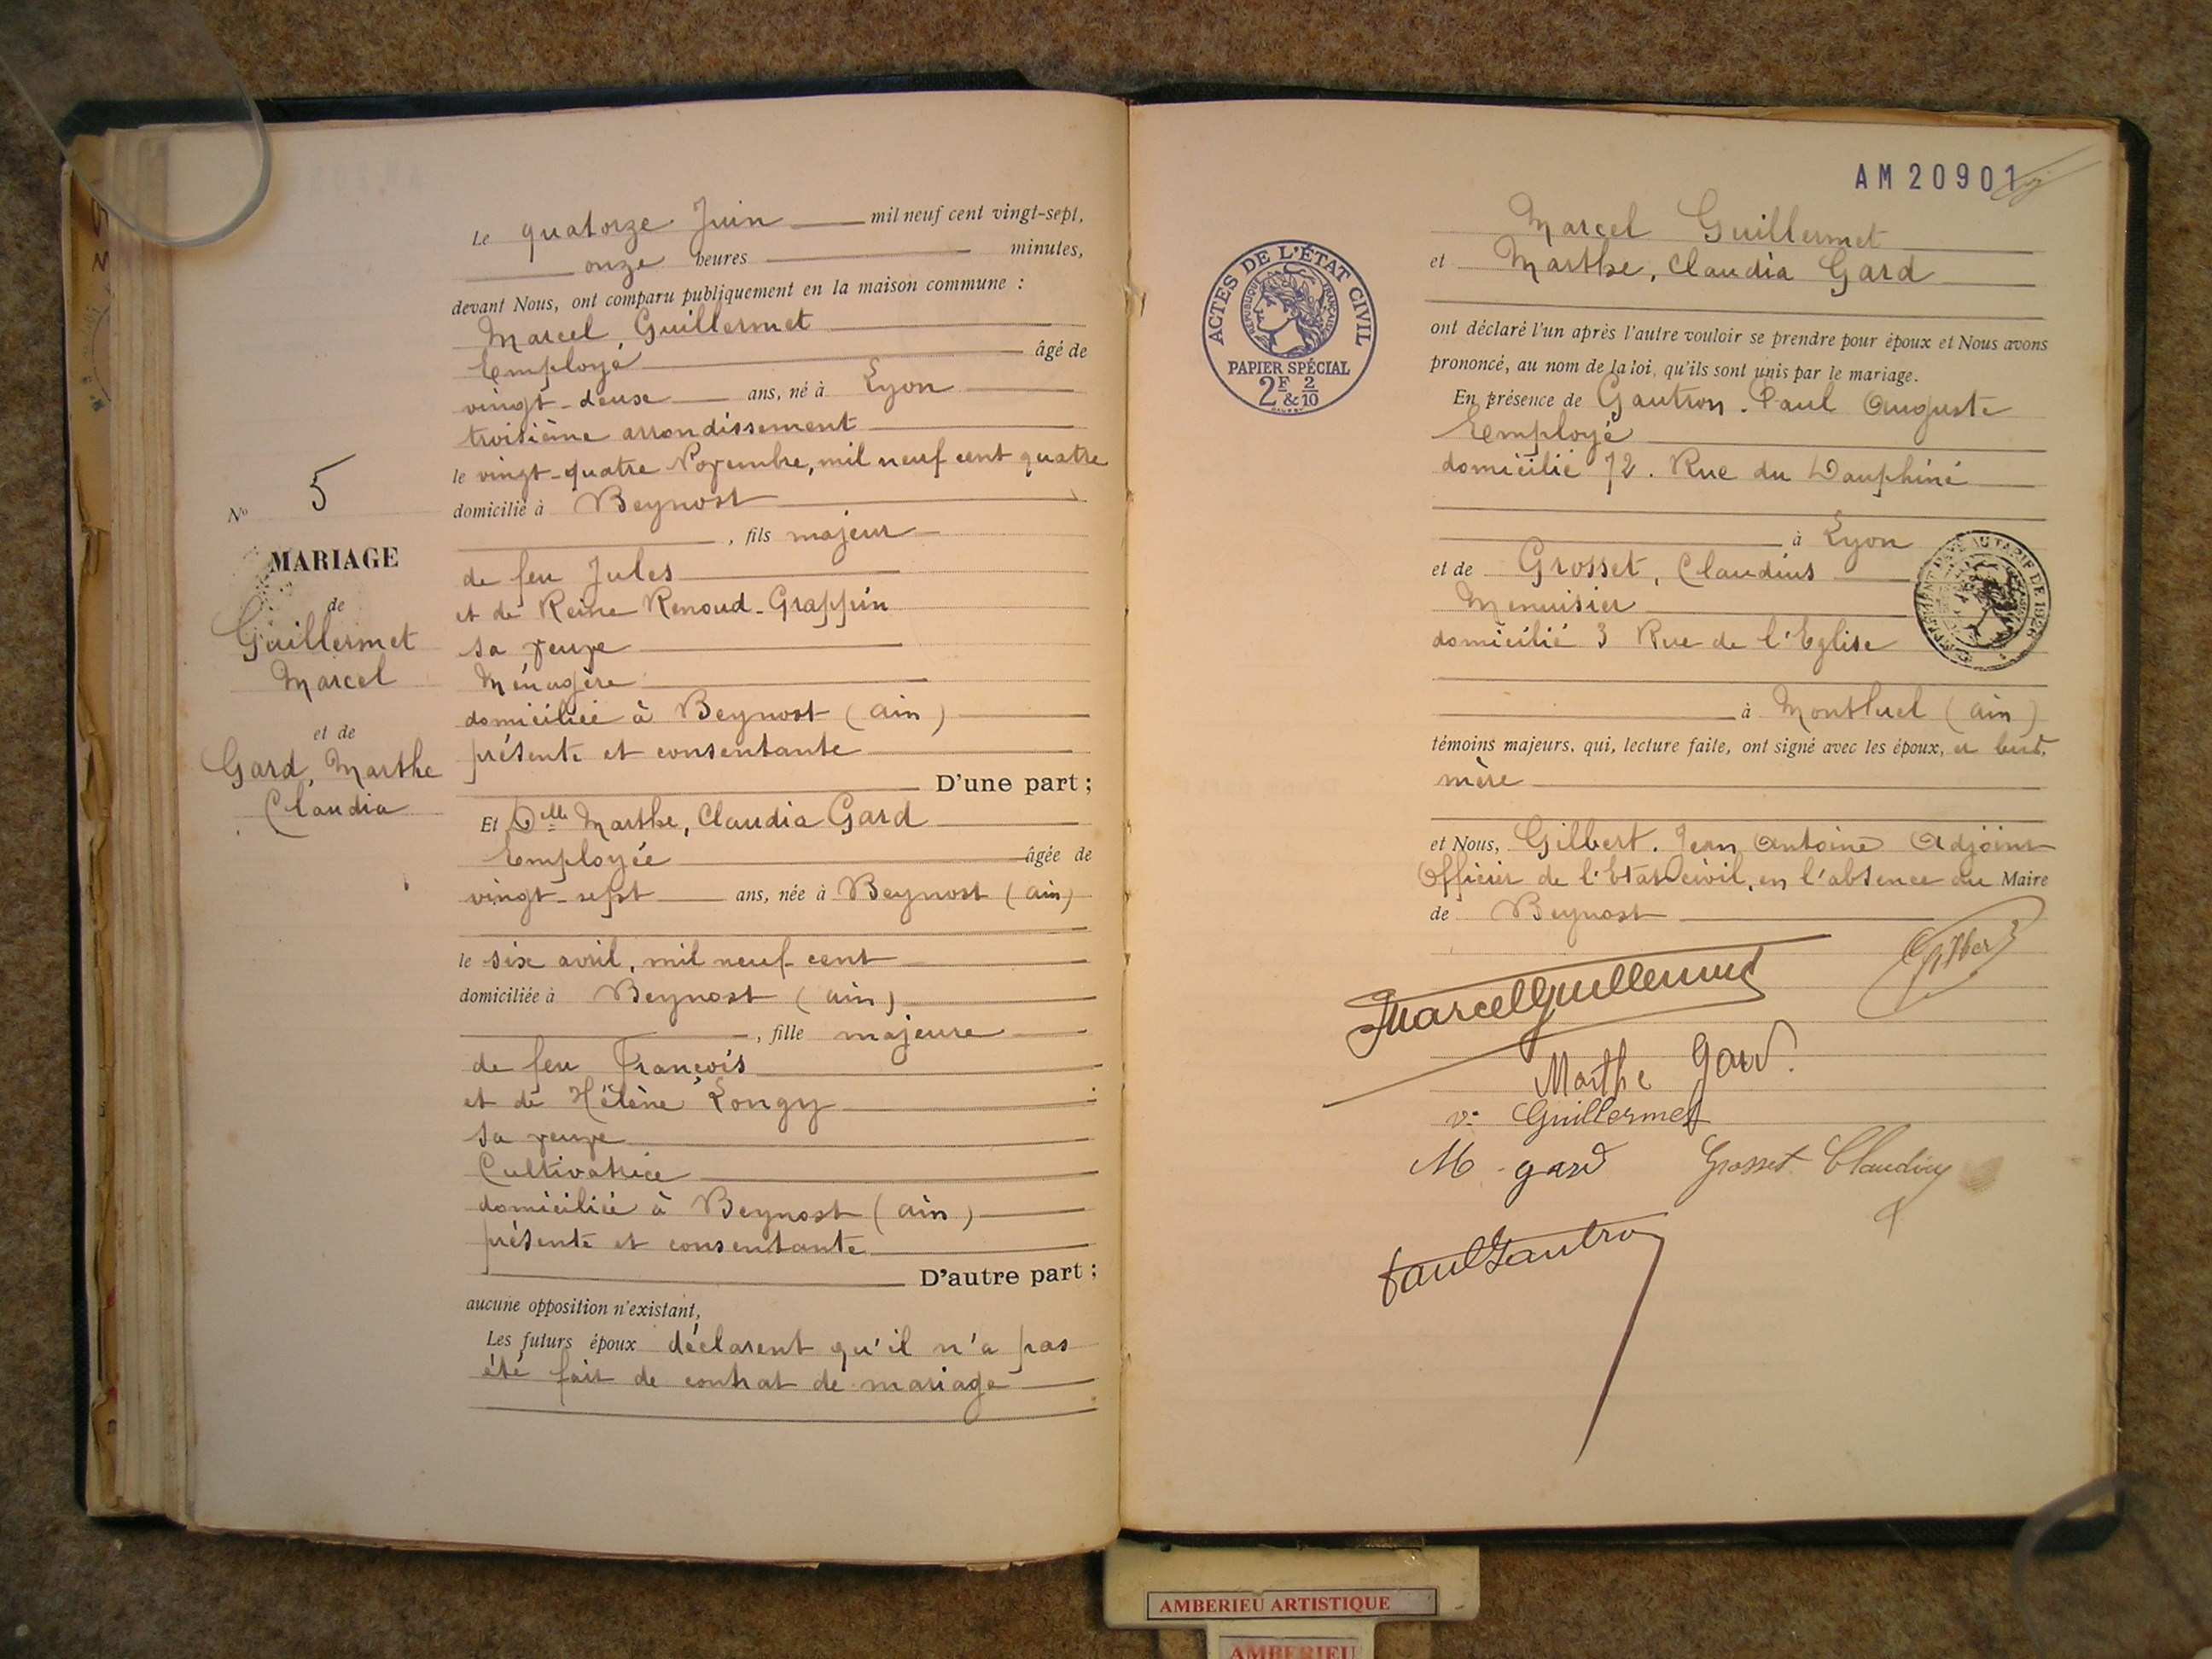 Le quatorze Juin mil neuf cent vingt-sept,
onze heures minutes,
devant Nous, ont comparu publiquement en la maison commune :
Marcel Guillermet
Employé âgé de
vingt-deux ans, né à Lyon
troisième arrondissement
le vingt-quatre Novembre, mil neuf cent quatre
domicilié à Beynost
, fils majeur
de feu Jules
et de Reine Renoud-Grappin
sa veuve
Ménagère
domiciliée à Beynost (ain)
présente et consentante
D'une part ;
Et Delle Marthe, Claudia Gard
Employée âgée de
vingt-sept ans, née à Beynost (ain)
le six avril, mil neuf cent
domiciliée à Beynost (ain)
, fille majeure
de feu François
et de Hélène Longy
sa veuve
Cultivatrice
domiciliée à Beynost (ain)
présente et consentante
D'autre part ;
aucune opposition n'existant,
Les futurs époux déclarent qu'il n'a pas
été fait de contrat de mariage
No 5
MARIAGE
de
Guillermet
Marcel
et de
Gard, Marthe
Claudia
AM20901
ACTES DE L'ÉTAT CIVIL
RÉPUBLIQUE FRANÇAISE
PAPIER SPÉCIAL
2F & 2/10
Marcel Guillermet
et Marthe, Claudia Gard
ont déclaré l'un après l'autre vouloir se prendre pour époux et Nous avons
prononcé, au nom de la loi, qu'ils sont unis par le mariage.
En présence de Gautron. Paul Auguste
Employé
domicilié 72. Rue du Dauphiné
à Lyon
et de Grosset, Claudius
Menuisier
domicilié 3 Rue de l'Eglise
à Montluel (ain)
témoins majeurs, qui, lecture faite, ont signé avec les époux, et leur
mère
et Nous, Gilbert. Jean Antoine Adjoint
Officier de l'Etat Civil, en l'absence du Maire
de Beynost
Marcel Guillermet
Gilbert
Marthe Gard.
ve Guillermet
M gard
Grosset Claudius
Paul Gautron
AMBERIEU ARTISTIQUE
AMBERIEU